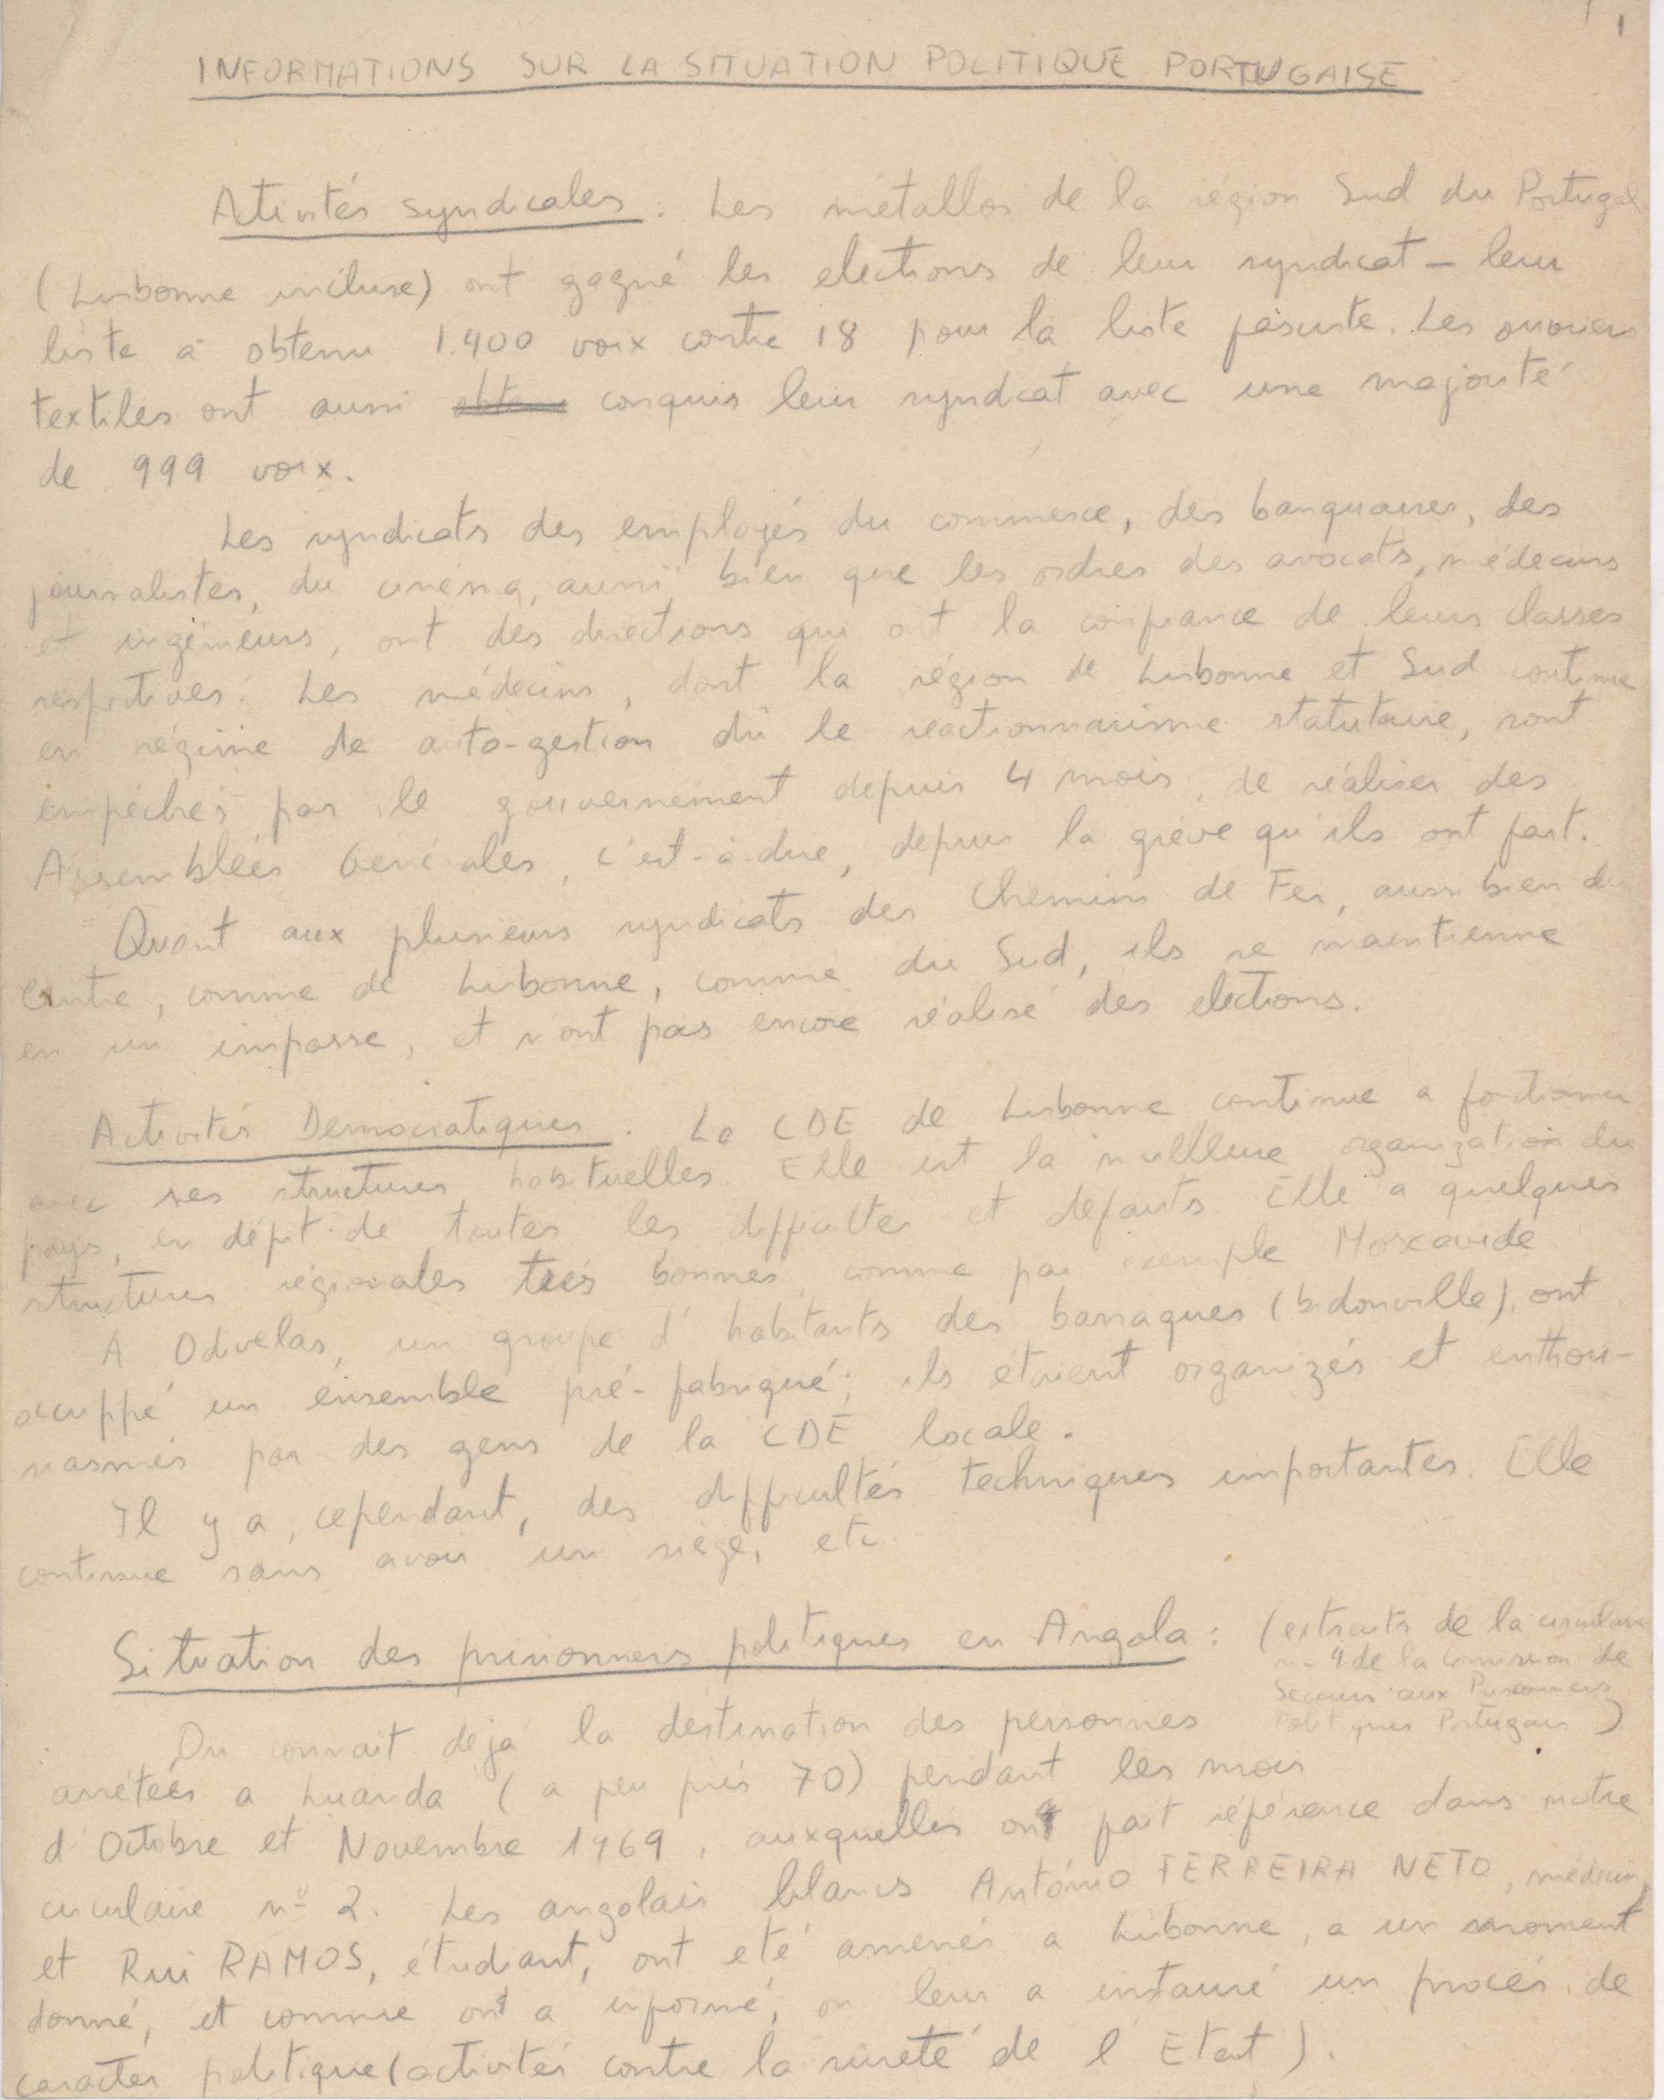 1
INFORMATIONS SUR LA SITUATION POLITIQUE PORTUGAISE
Activités syndicales : Les métallos de la région Sud du Portugal
(Lisbonne incluse) ont gagné les elections de leur syndicat - leur
liste a obtenu 1.400 voix contre 18 pour la liste fasciste. Les ouvriers
textiles ont aussi conquis leur syndicat avec une majorité
de 999 voix.
Les syndicats des employés du commerce, des banquaires, des
journalistes, du cinéma, aussi bien que les ordres des avocats, médecins
et ingénieurs, ont des directions qui ont la confiance de leurs classes
respectives. Les médecins, dont la région de Lisbonne et Sud continue
en régime de auto-gestion dû le reactionnarisme statutaire, sont
empéchés par le gouvernement depuis 4 mois, de réaliser des
Assemblées Générales, c'est-à-dire, depuis la grève qu'ils ont fait.
Quant aux plusieurs syndicats des Chemins de Fer, aussi bien du
Centre, comme de Lisbonne, comme du Sud, ils se maintienne
en un impasse, et n'ont pas encore réalisé des elections.
Activités Démocratiques . La CDE de Lisbonne continue a fontionner
avec ses structures habituelles. Elle est la meilleure organization du
pays, en dépit de toutes les difficultes et defauts. Elle a quelques
structures régionales très bonnes, comme par exemple Moscavide
A Odivelas, un groupe d'habitants des barraques (bidonville), ont
occuppé un ensemble pré-fabriqué; ils étaient organizés et enthou-
siasmés par des gens de la CDE locale.
Il y a, cependant, des difficultés techniques importantes. Elle
continue sans avoir un siège, etc.
Situation des prisonniers politiques en Angola : (extraits de la circulaire
nº 4 de la Comission de
Secours aux Prisonniers
Politiques Portugais)
On connait déjà la destination des personnes
arrêtées a Luanda (a peu près 70) pendant les mois
d'Octobre et Novembre 1969, auxquelles on a fait référence dans notre
circulaire nº 2. Les angolais blancs António FERREIRA NETO, médecin,
et Rui RAMOS, étudiant, ont eté amenés a Lisbonne, a un moment
donné, et comme on a informé, on leur a instauré un procés de
caractér politique (activités contre la sureté de l'Etat).